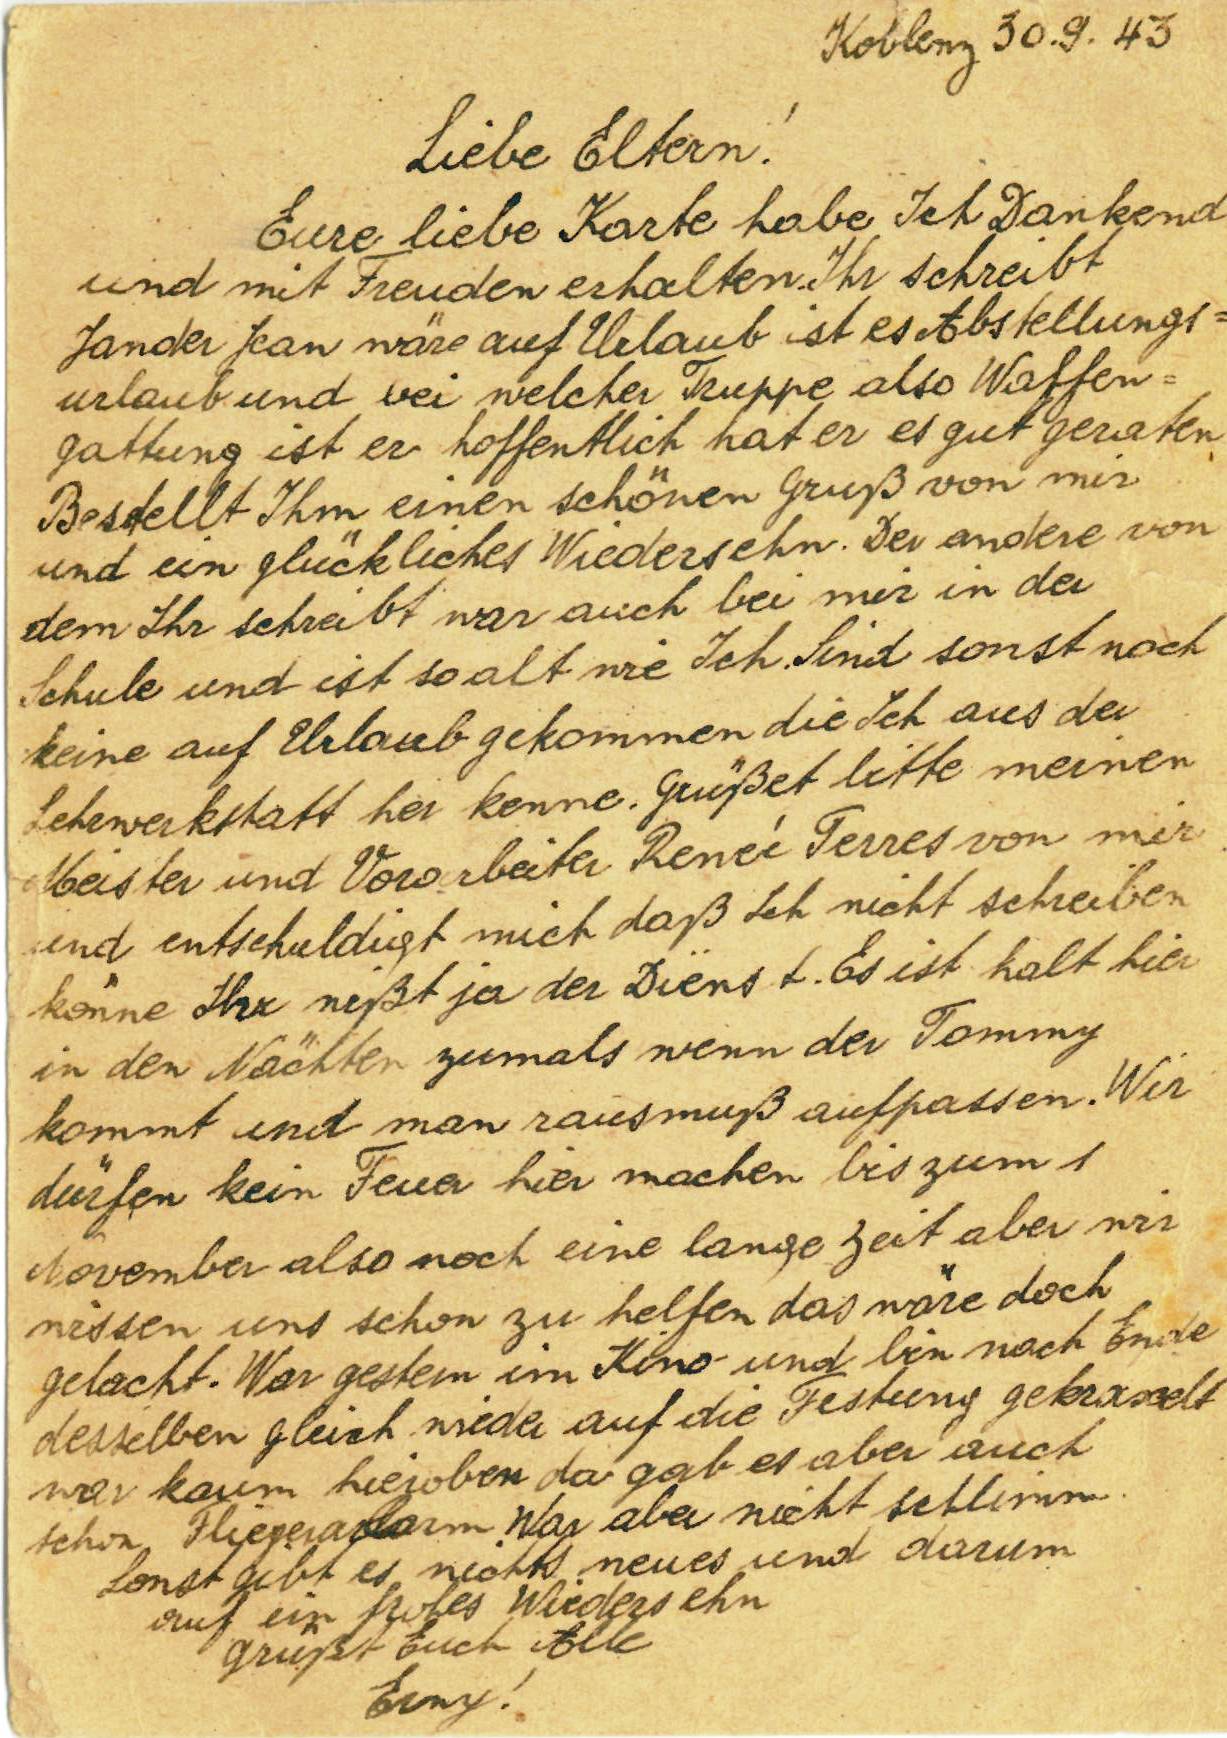 Koblenz 30.9.43
Liebe Eltern!
Eure liebe Karte habe Ich Dankend
und mit Freuden erhalten. Ihr schreibt
Jander Jean wäre auf Urlaub ist es Abstellungs=
urlaub und bei welcher Truppe also Waffen=
gattung ist er hoffentlich hat er es gut geraten
Bestellt Ihm einen schönen Gruß von mir
und ein glückliches Wiedersehn. Der andere von
dem Ihr schreibt war auch bei mir in der
Schule und ist so alt wie Ich. Sind sonst noch
keine auf Urlaub gekommen die Ich aus der
Lehrwerkstatt her kenne. Grüßet bitte meinen
Meister und Vorarbeiter René Terres von mir
und entschuldigt mich daß Ich nicht schreiben
könne Ihr wißt ja der Dienst. Es ist kalt hier
in den Nächten zumals wenn der Tommy
kommt und man raus muß aufpassen. Wir
dürfen kein Feuer hier machen bis zum 1
November also noch eine lange Zeit aber wir
wissen uns schon zu helfen das wäre doch
gelacht. War gestern im Kino und bin nach Ende
desselben gleich wieder auf die Festung gekraxelt
war kaum hieroben da gab es aber auch
schon Fliegeralarm War aber nicht schlimm.
Sonst gibt es nichts neues und darum
auf ein frohes Wiedersehn
grüßt Euch Alle
Erny!